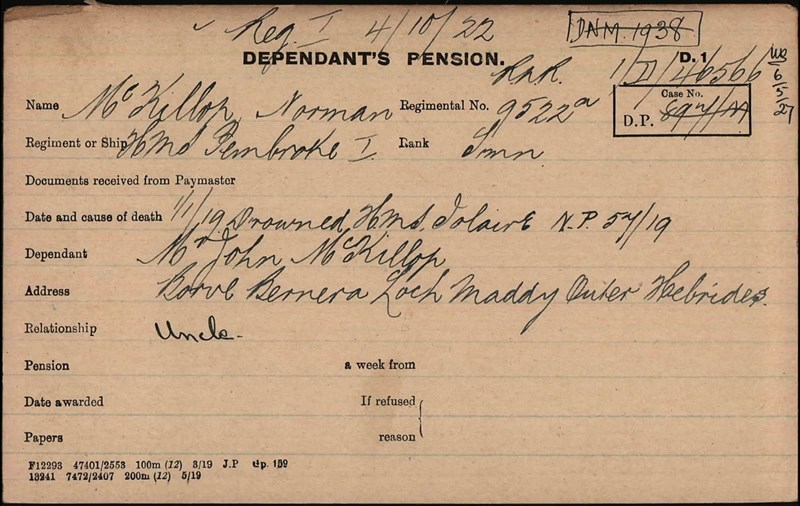 Reg. I 4/10/22 D.N.M. 1938
DEPENDANT'S PENSION. D. 1
1/D/46566
6/5/27
Name McKillop, Norman Regimental No. 9522a
Case No.
D.P.
Regiment or Ship HMS Pembroke I. Rank Smn
Documents received from Paymaster
Date and cause of death 1/1/19 Drowned H.M.S. Iolaire N.P. 57/19
Dependant Mr John McKillop
Address Borve Bernera Loch Maddy Outer Hebrides.
Relationship Uncle-
Pension a week from
Date awarded If refused
Papers reason
F12293 47401/2553 100m (12) 3/19 J.P Gp. 159
13241 7472/2407 200m (12) 5/19